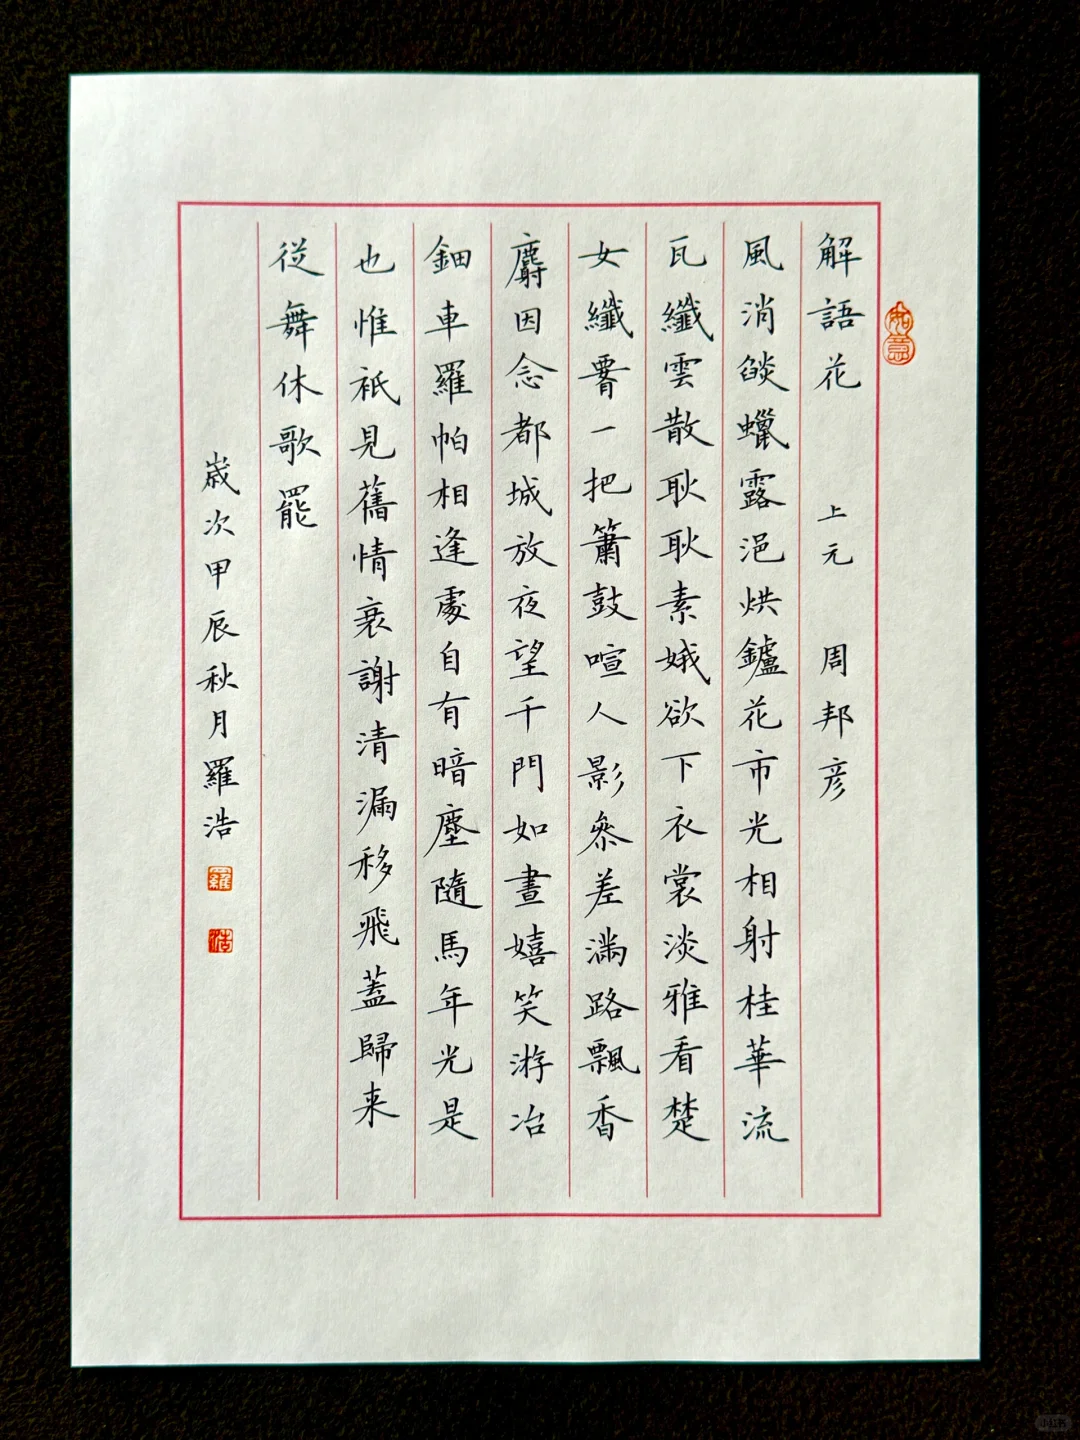 解語花 上元 周邦彦
如意
風消燄蠟露浥烘鑪花市光相射桂華流
瓦纖雲散耿耿素娥欲下衣裳淡雅看楚
女纖腰一把簫鼓喧人影參差滿路飄香
麝因念都城放夜望千門如晝嬉笑游冶
鈿車羅帕相逢處自有暗塵隨馬年光是
也惟衹見舊情衰謝清漏移飛蓋歸来
從舞休歌罷
歲次甲辰秋月羅浩
羅
浩
小红书